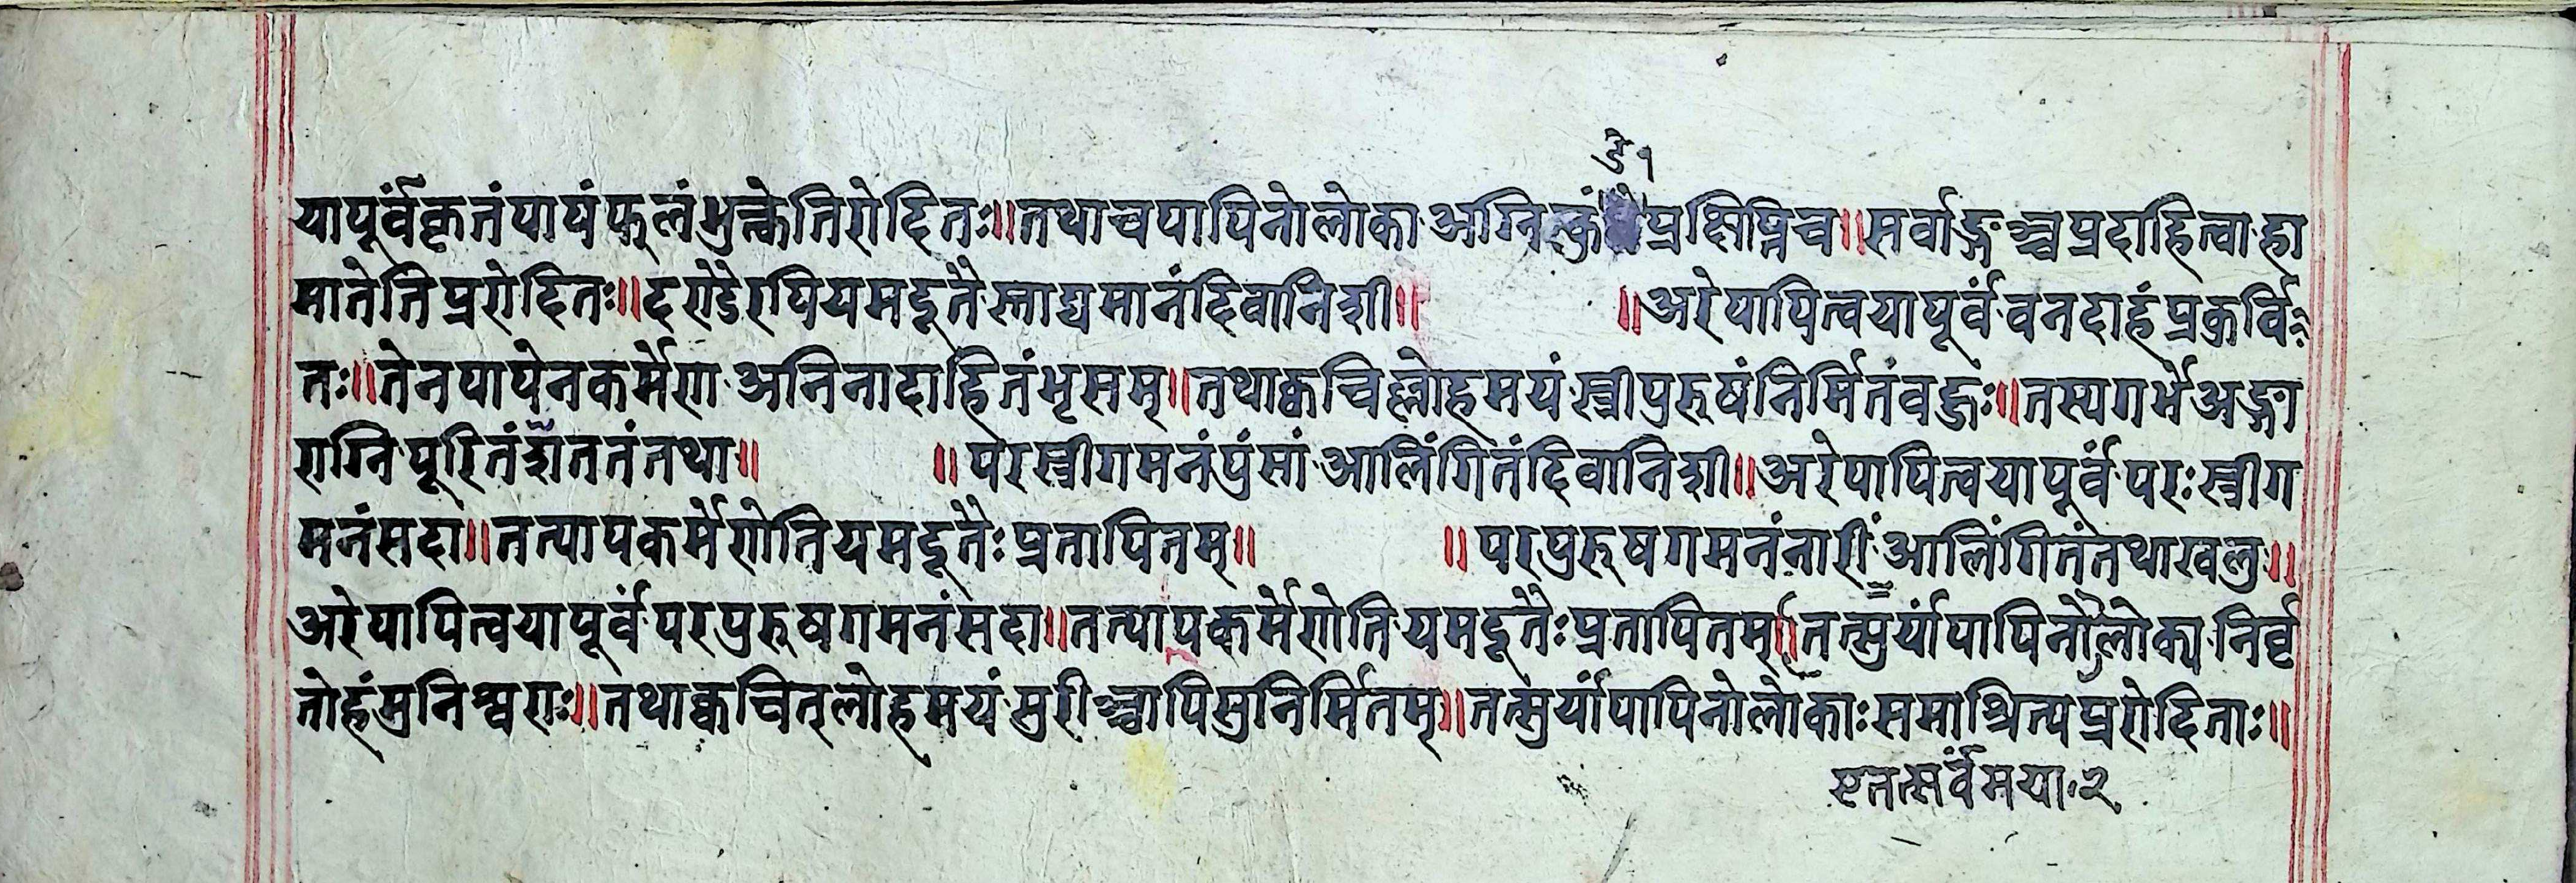 डे १
यापूर्वंकृतंपापंफलंभुक्त्वेतिरोदितः॥तथाचपापिनोलोका अग्निकुं प्रक्षिप्तिच॥सर्वाङ्गञ्चप्रदाहित्वा हा
मातेतिप्ररोदितः॥दण्डैरपियमदूतैस्ताद्यमानंदिवानिशी॥ ॥अरेपापित्वयापूर्वं वनदाहंप्रकुर्वि
तः॥तेनपापेनकर्मेण अनिनादाहितंभृसम्॥तथाक्वचिल्लोहमयं स्त्रीपुरुषंनिर्मितंवद्धः॥तस्यगर्भे अङ्गा
राग्नि पूरितं शततंतथा॥ ॥परस्त्रीगमनंपुंसां आलिंगितंदिवानिशी॥अरेपापित्वयापूर्वं परःस्त्रीग
मनंसदा॥तत्पापकर्मेणेतियमदूतैः प्रतापितम्॥ ॥परपुरुषगमनंनारीं आलिंगितंतथाखलु॥
अरेपापित्वयापूर्वं परपुरुषगमनंसदा॥तत्पापकर्मेणेति यमदूतैः प्रतापितम्॥तत्पुर्यांपापिनोलोक्य निर्वृ
तोहंमुनिश्वराः॥तथाक्वचित्लोहमयं पुरीञ्चापिसुनिर्मितम्॥तत्पुर्यांपापिनोलोकाःसमाश्रित्यप्ररोदिताः॥
एतत्सर्वंमया २